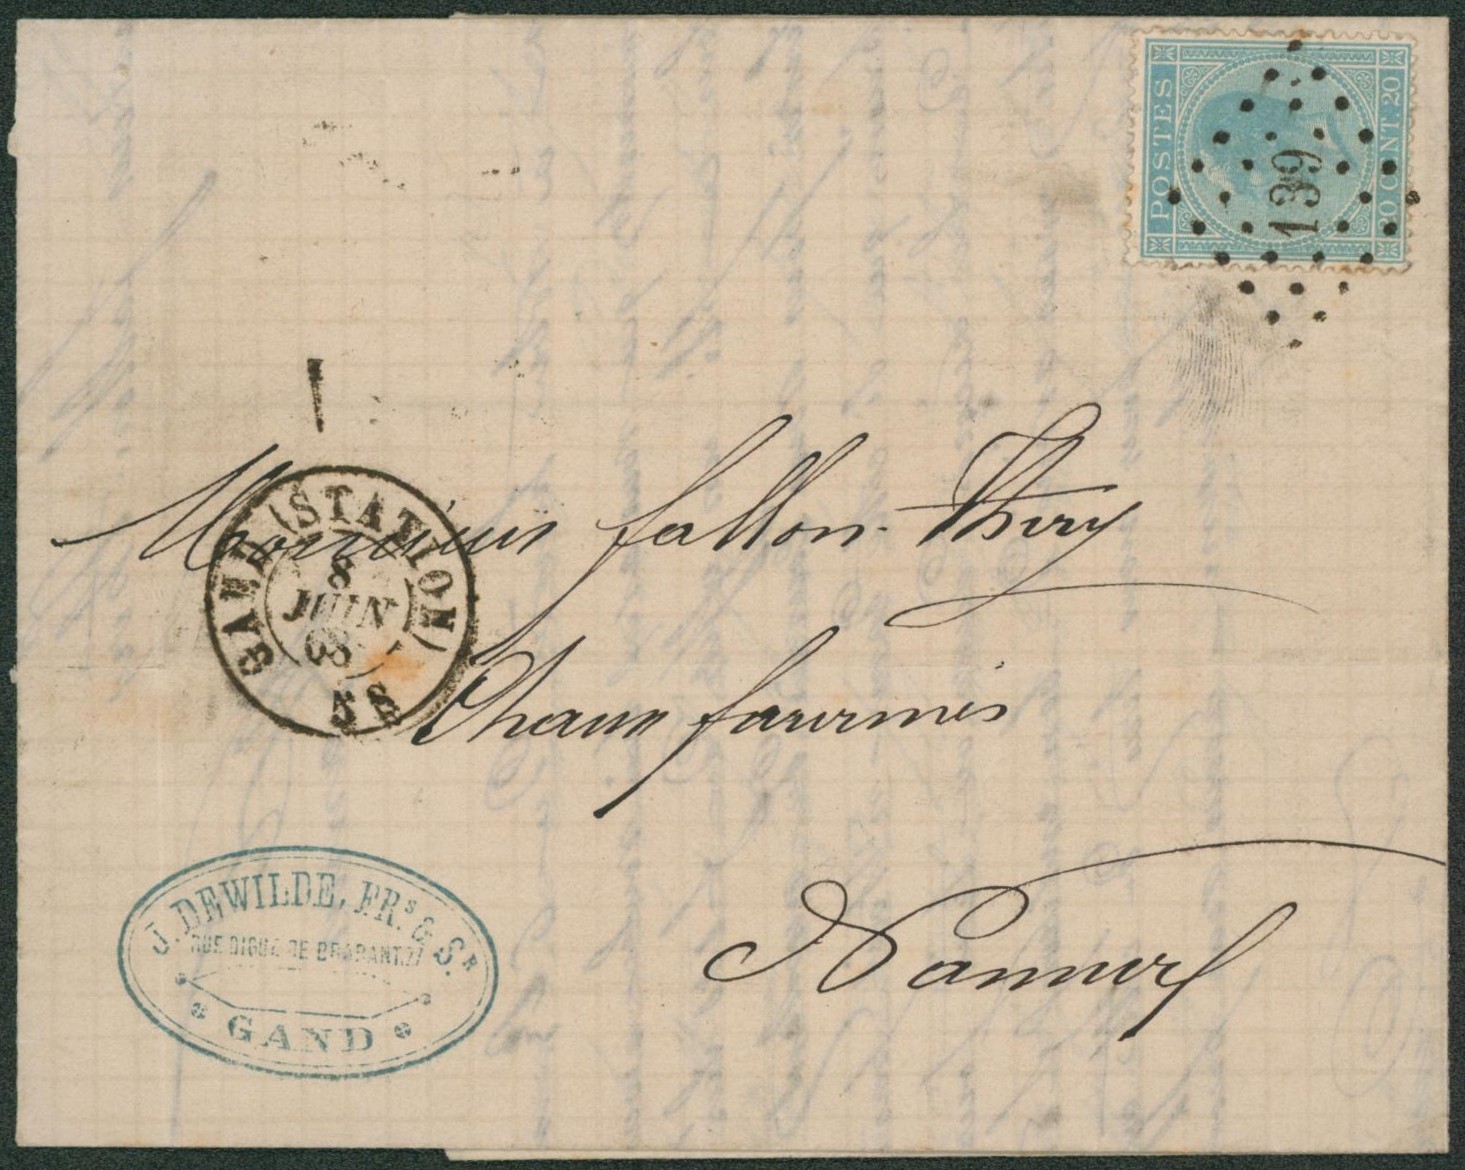 POSTES
20 CENT. 20
139
GAND (STATION)
8
JUIN
68
5 S
Monsieur fallon-Thiry
Chaux fournier
Nammur
J. DEWILDE, FRS. & SR.
RUE DIGUE DE BRABANT.27
GAND